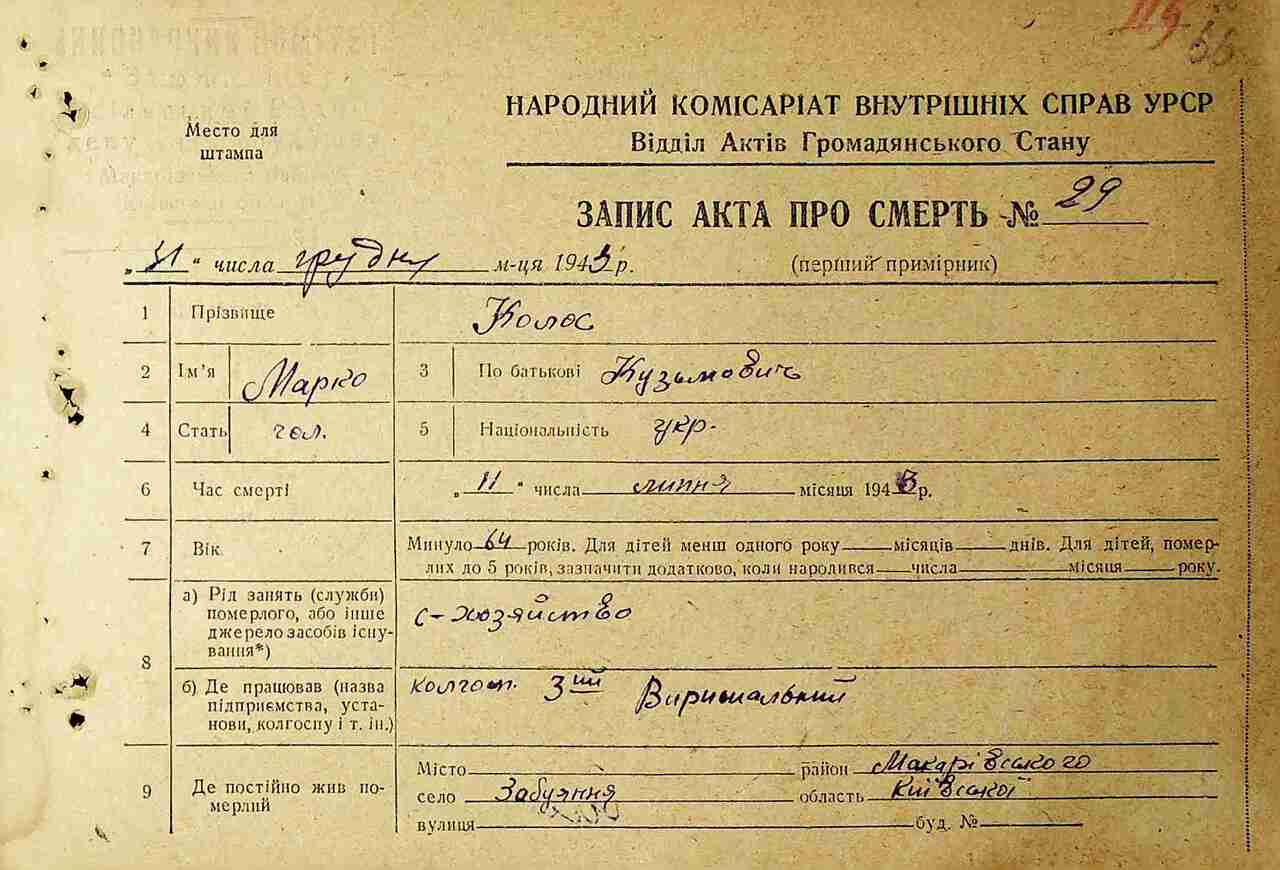 119 56
Место для
штампа
НАРОДНИЙ КОМІСАРІАТ ВНУТРІШНІХ СПРАВ УРСР
Відділ Актів Громадянського Стану
ЗАПИС АКТА ПРО СМЕРТЬ № 29
„31“ числа грудня м-ця 1943 р. (перший примірник)
1 Прізвище Колос
2 Ім’я Марко 3 По батькові Кузьмович
4 Стать чол. 5 Національність укр.
6 Час смерті „11“ числа липня місяця 1943 р.
7 Вік Минуло 64 років. Для дітей менш одного року місяців днів. Для дітей, помер-
лих до 5 років, зазначити додатково, коли народився числа місяця року.
8 а) Рід занять (служби)
померлого, або інше
джерело засобів існу-
вання*) с-хозяйство
б) Де працював (назва
підприємства, уста-
нови, колгоспу і т. ін.) колгосп. 3ий Вирішальний
9 Де постійно жив по-
мерлий
Місто район Макарівського
село Забуяння область Київської
вулиця буд. №